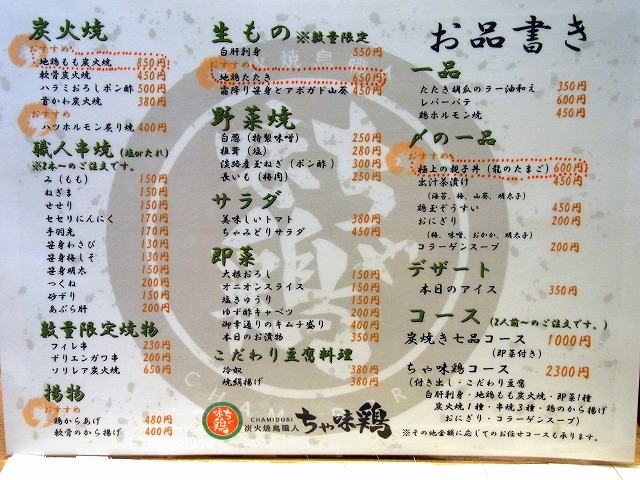 お品書き
炭火焼
おすすめ
地鶏もも炭火焼 850円
軟骨炭火焼 450円
ハラミおろしポン酢 500円
首かわ炭火焼 380円
おすすめ
ハツホルモン炙り焼 400円
職人串焼(塩orたれ)
※2本~のご注文です。
み(もも) 150円
ねぎま 150円
せせり 150円
セセリにんにく 170円
手羽先 170円
笹身わさび 130円
笹身梅しそ 130円
笹身明太 150円
つくね 200円
砂ずり 150円
あぶら肝 200円
数量限定焼物
フィレ串 230円
ずりエンガワ串 200円
ソリレア炭火焼 650円
揚物
おすすめ
鶏からあげ 480円
軟骨のから揚げ 400円
生もの ※数量限定
白肝刺身 550円
おすすめ
地鶏たたき 650円
霜降り笹身とアボガド山葵 450円
野菜焼
白葱(特製味噌) 250円
椎茸(塩) 280円
淡路産玉ねぎ(ポン酢) 300円
長いも(梅肉) 250円
サラダ
美味しいトマト 380円
ちゃみどりサラダ 450円
即菜
大根おろし 150円
オニオンスライス 150円
塩きゅうり 150円
ゆず酢キャベツ 200円
御幸通りのキムチ盛り 400円
本日のお漬物 350円
こだわり豆腐料理
冷奴 380円
焼絹揚げ 380円
味ちゃ鶏
CHAMIDORI
炭火焼鳥職人 ちゃ味鶏
一品
たたき胡瓜のラー油和え 350円
レバーパテ 600円
鶏ホルモン焼 450円
〆の一品
おすすめ
極上の親子丼(龍のたまご) 600円
出汁茶漬け 450円
(海苔、梅、山葵、明太子)
鶏玉ぞうすい 450円
おにぎり 200円
(梅、味噌、おかか、明太子)
コラーゲンスープ 200円
デザート
本日のアイス 350円
コース(2人前~のご注文です。)
炭焼き七品コース 1000円
(即菜付き)
ちゃ味鶏コース 2300円
(付き出し・こだわり豆腐
白肝刺身・地鶏もも炭火焼・即菜1種
炭火焼1種・串焼3種・鶏のから揚げ
おにぎり・コラーゲンスープ)
※その他金額に応じてのお任せコースも承ります。